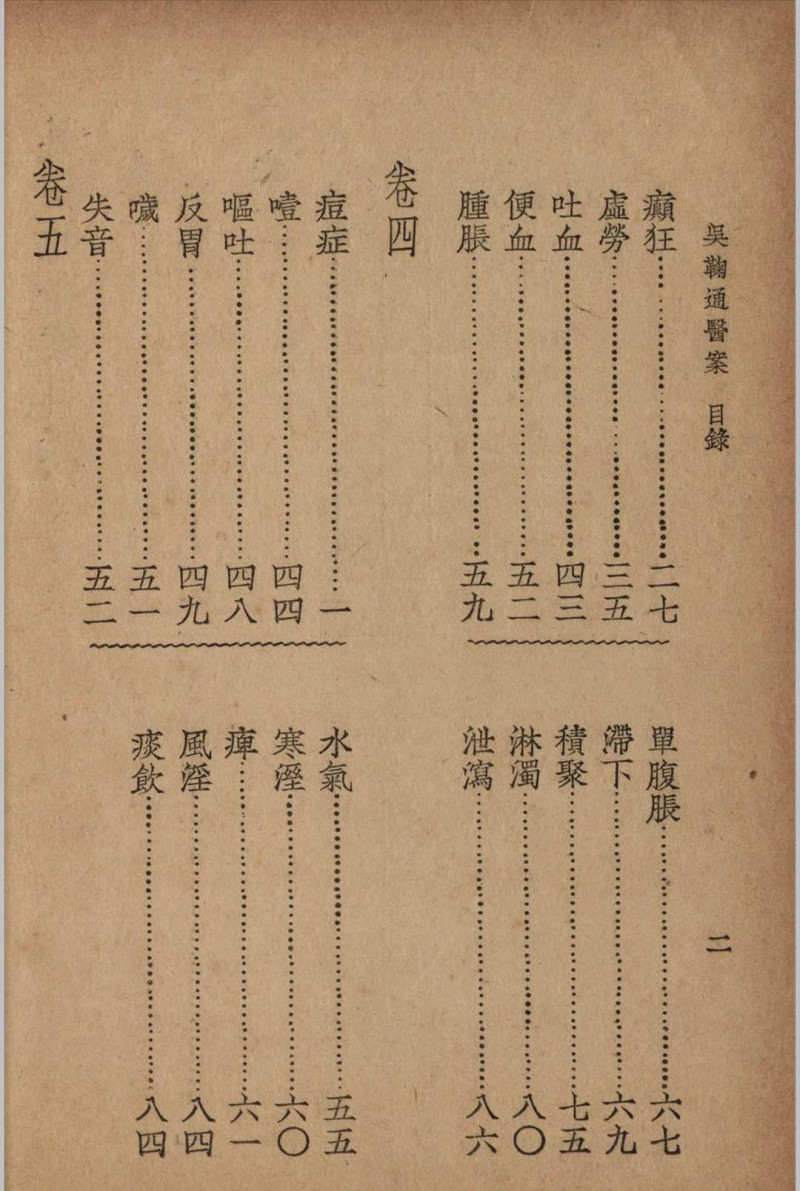 吳鞠通醫案 目錄 二
癲狂……二七
虛勞……三五
吐血……四三
便血……五二
腫脹……五九
單腹脹……六七
滯下……六九
積聚……七五
淋濁……八〇
泄瀉……八六
卷四
痘症……一
噎……四四
嘔吐……四八
反胃……四九
噦……五一
失音……五二
水氣……五五
寒溼……六〇
痺……六一
風溼……八四
痰飲……八四
卷五